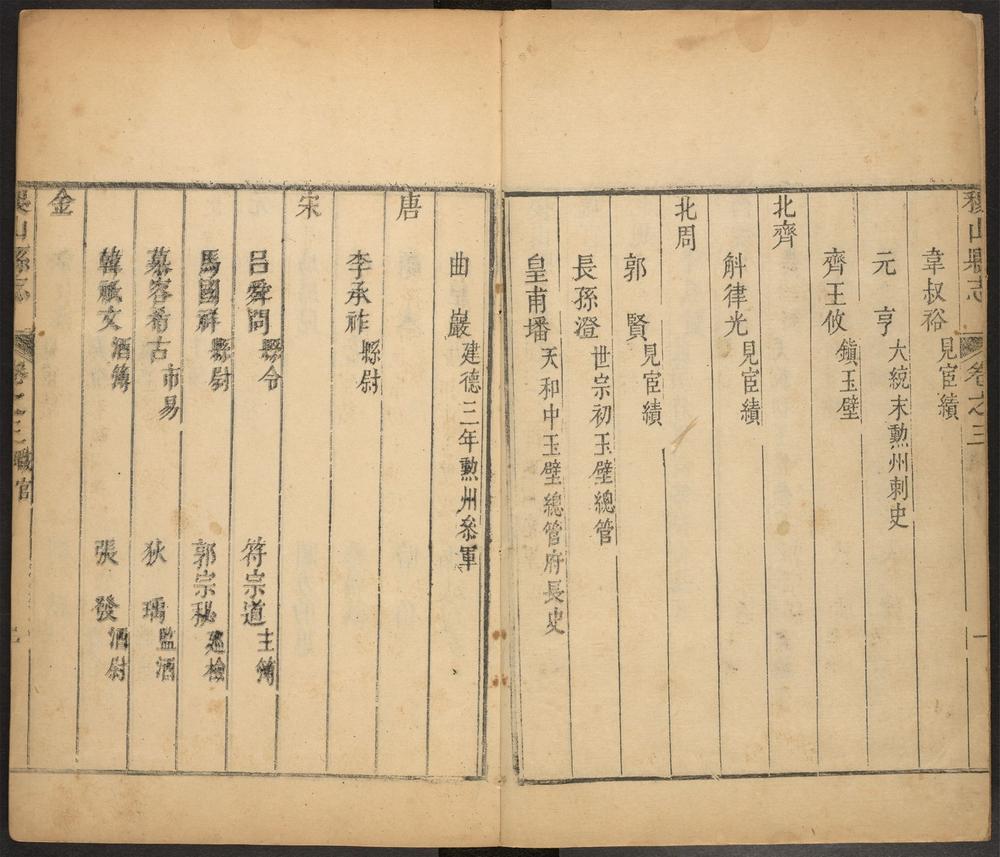 稷山縣志 卷之三 一
韋叔裕 見宦績
元亨 大統末勲州刺史
齊王攸 鎮玉壁
北齊
斛律光 見宦績
北周
郭賢 見宦績
長孫澄 世宗初玉壁總管
皇甫璠 天和中玉壁總管府長史
曲巖 建德三年勲州叅軍
唐
李承祚 縣尉
宋
呂舜問 縣令 符宗道 主簿
馬國祥 縣尉 郭宗秘 廵檢
慕容希古 市易 狄瑀 監酒
韓祗文 酒簿 張發 酒尉
金
稷山縣志 卷之三 職官